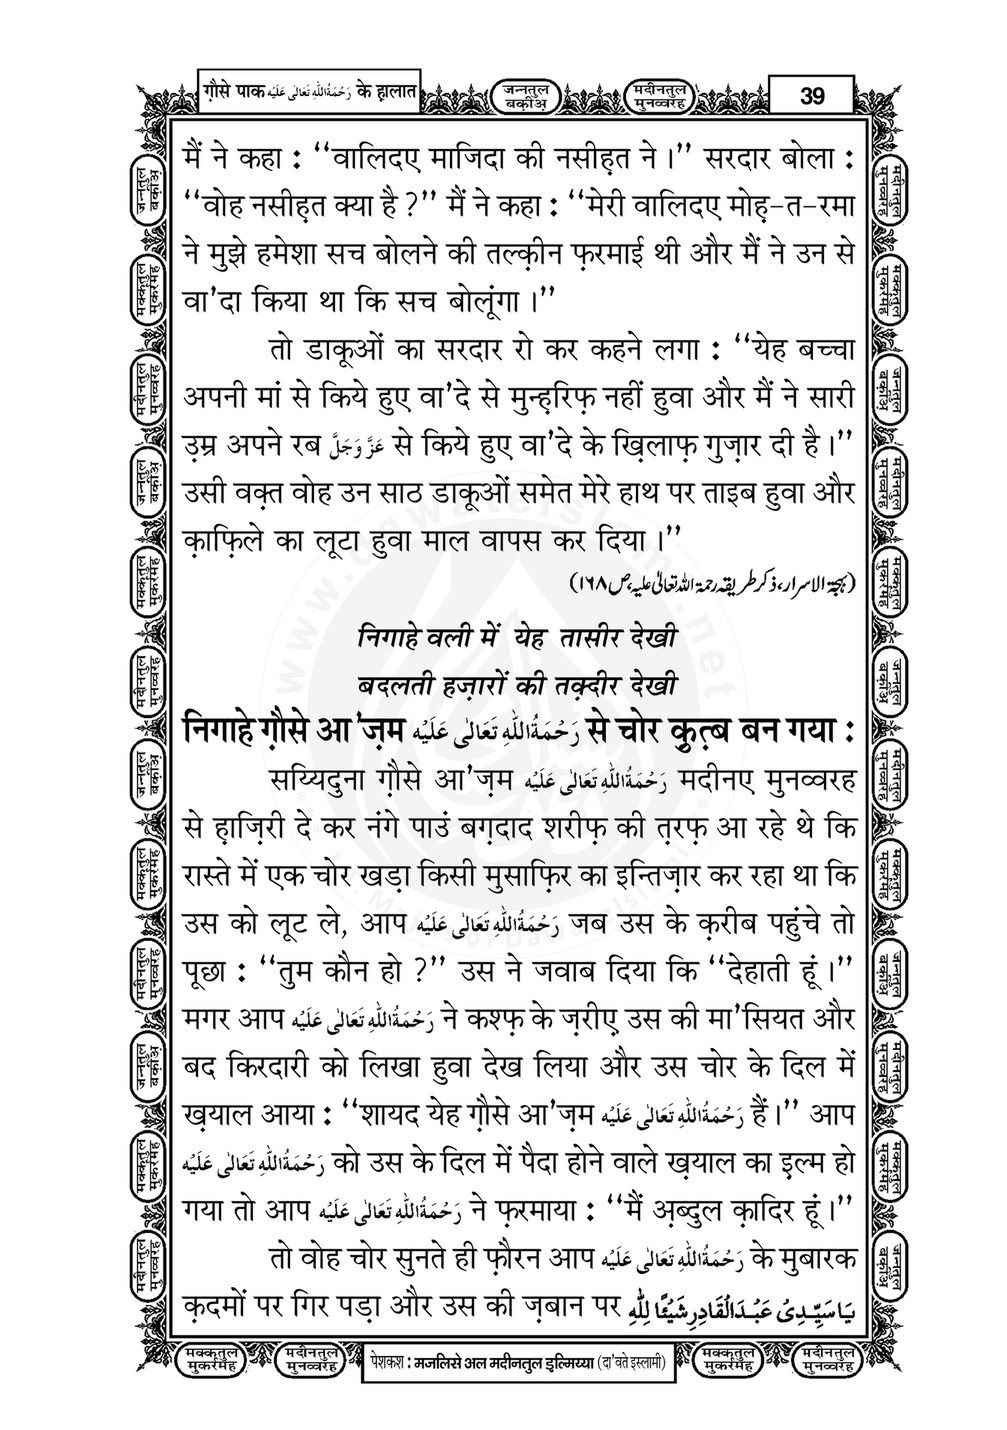 ग़ौसे पाक رَحْمَةُ اللهِ تَعَالٰی عَلَيْه के ह़ालात
जन्नतुल बक़ीअ़
मदीनतुल मुनव्वरह
39
मैं ने कहा : ‘‘वालिदए माजिदा की नसीह़त ने ।’’ सरदार बोला :
‘‘वोह नसीह़त क्या है ?’’ मैं ने कहा : ‘‘मेरी वालिदए मोह़-त-रमा
ने मुझे हमेशा सच बोलने की तल्क़ीन फ़रमाई थी और मैं ने उन से
वा’दा किया था कि सच बोलूंगा ।’’
तो डाकूओं का सरदार रो कर कहने लगा : ‘‘येह बच्चा
अपनी मां से किये हुए वा’दे से मुन्ह़रिफ़ नहीं हुवा और मैं ने सारी
उ़म्र अपने रब عَزَّوَجَلَّ से किये हुए वा’दे के ख़िलाफ़ गुज़ार दी है ।’’
उसी वक़्त वोह उन साठ डाकूओं समेत मेरे हाथ पर ताइब हुवा और
क़ाफ़िले का लूटा हुवा माल वापस कर दिया ।’’
(بہجۃ الاسرار، ذکر طریقہ رحمۃ اللہ تعالیٰ علیہ، ص ۱۶۸)
निगाहे वली में येह तासीर देखी
बदलती हज़ारों की तक़्दीर देखी
निगाहे ग़ौसे आ’ज़म رَحْمَةُ اللهِ تَعَالٰی عَلَيْه से चोर क़ुत़्ब बन गया :
सय्यिदुना ग़ौसे आ’ज़म رَحْمَةُ اللهِ تَعَالٰی عَلَيْه मदीनए मुनव्वरह
से ह़ाज़िरी दे कर नंगे पाउं बग़दाद शरीफ़ की त़रफ़ आ रहे थे कि
रास्ते में एक चोर खड़ा किसी मुसाफ़िर का इन्तिज़ार कर रहा था कि
उस को लूट ले, आप رَحْمَةُ اللهِ تَعَالٰی عَلَيْه जब उस के क़रीब पहुंचे तो
पूछा : ‘‘तुम कौन हो ?’’ उस ने जवाब दिया कि ‘‘देहाती हूं ।’’
मगर आप رَحْمَةُ اللهِ تَعَالٰی عَلَيْه ने कश्फ़ के ज़रीए उस की मा’सियत और
बद किरदारी को लिखा हुवा देख लिया और उस चोर के दिल में
ख़याल आया : ‘‘शायद येह ग़ौसे आ’ज़म رَحْمَةُ اللهِ تَعَالٰی عَلَيْه हैं ।’’ आप
رَحْمَةُ اللهِ تَعَالٰی عَلَيْه को उस के दिल में पैदा होने वाले ख़याल का इ़ल्म हो
गया तो आप رَحْمَةُ اللهِ تَعَالٰی عَلَيْه ने फ़रमाया : ‘‘मैं अ़ब्दुल क़ादिर हूं ।’’
तो वोह चोर सुनते ही फ़ौरन आप رَحْمَةُ اللهِ تَعَالٰی عَلَيْه के मुबारक
क़दमों पर गिर पड़ा और उस की ज़बान पर يَا سَيِّدِىْ عَبْدَ الْقَادِرِ شَيْئًا لِلّٰهِ
मक्कतुल मुकर्रमह
मदीनतुल मुनव्वरह
पेशकश : मजलिसे अल मदीनतुल इ़ल्मिय्या (दा’वते इस्लामी)
मक्कतुल मुकर्रमह
मदीनतुल मुनव्वरह
www.dawateislami.net